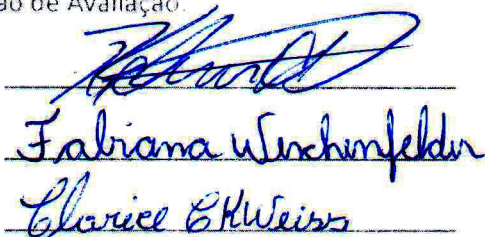 ão de Avaliação.
Fabiana Weschenfelder
Clarice CKWeiss